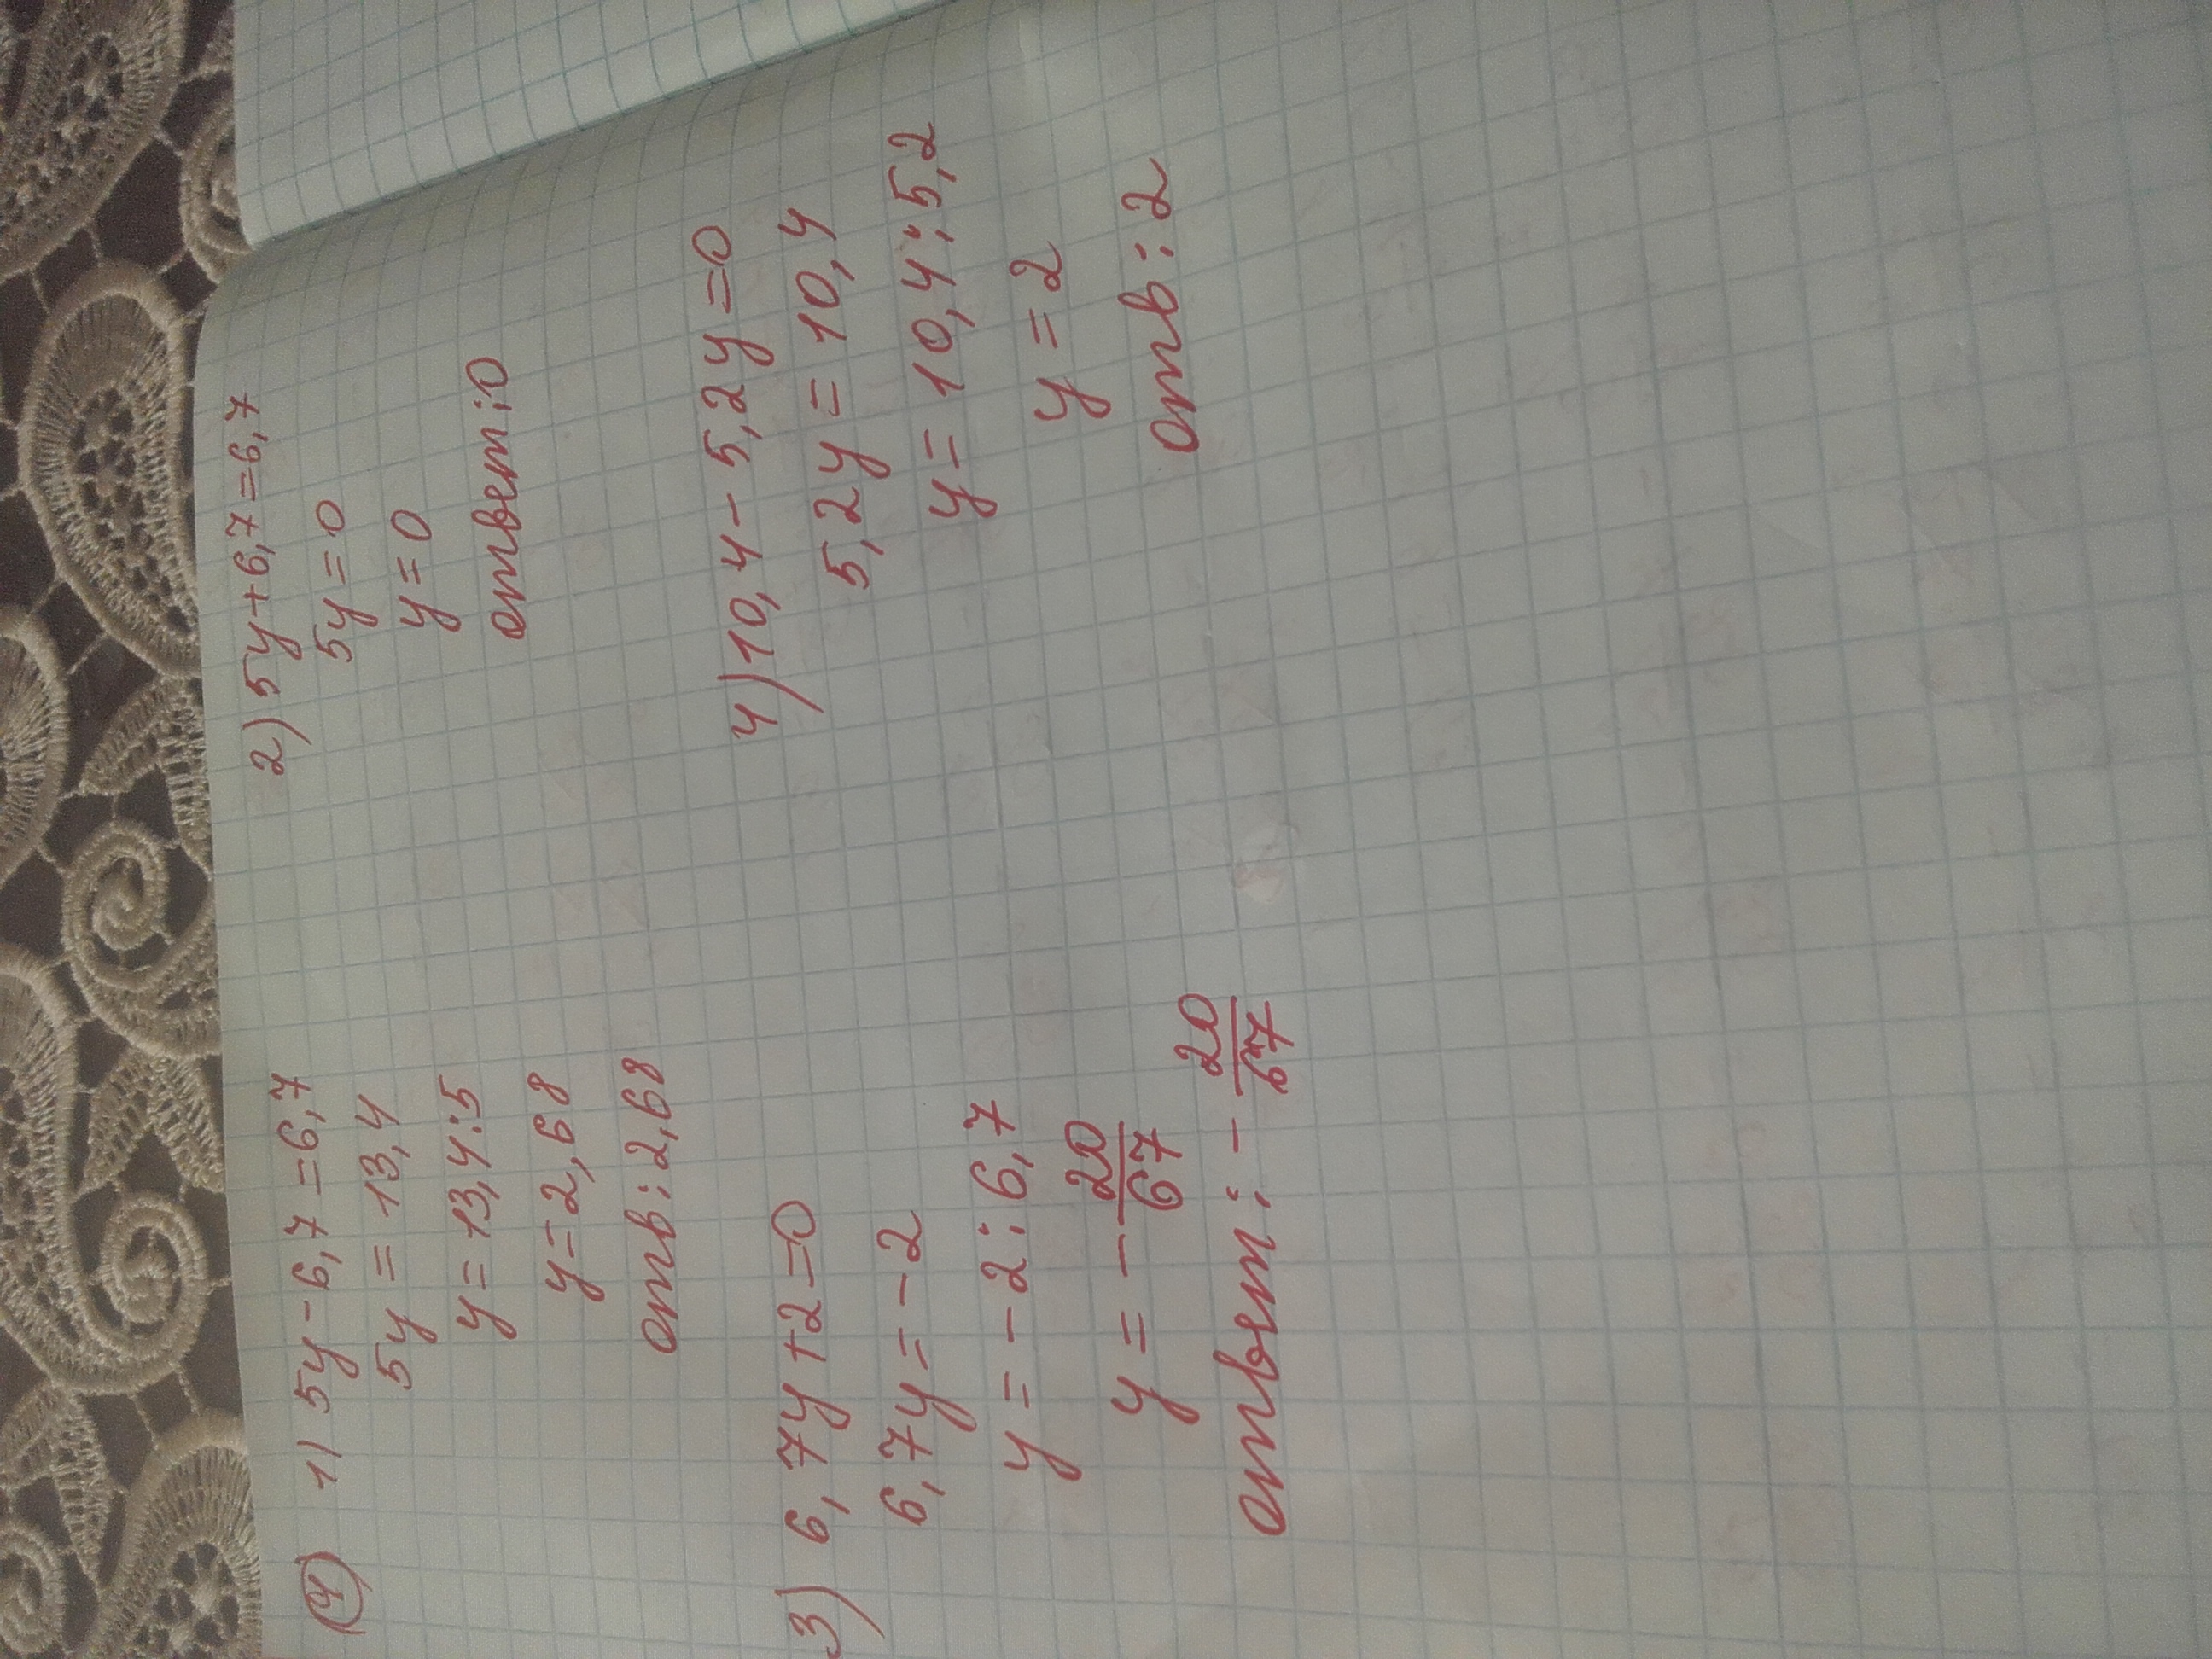 4) 1) 5y-6,7=6,7
5y=13,4
y=13,4:5
y=2,68
отв:2,68
2) 5y+6,7=6,7
5y=0
y=0
ответ:0
3) 6,7y+2=0
6,7y=-2
y=-2:6,7
y=-20/67
ответ:-20/67
4) 10,4-5,2y=0
5,2y=10,4
y=10,4:5,2
y=2
отв:2